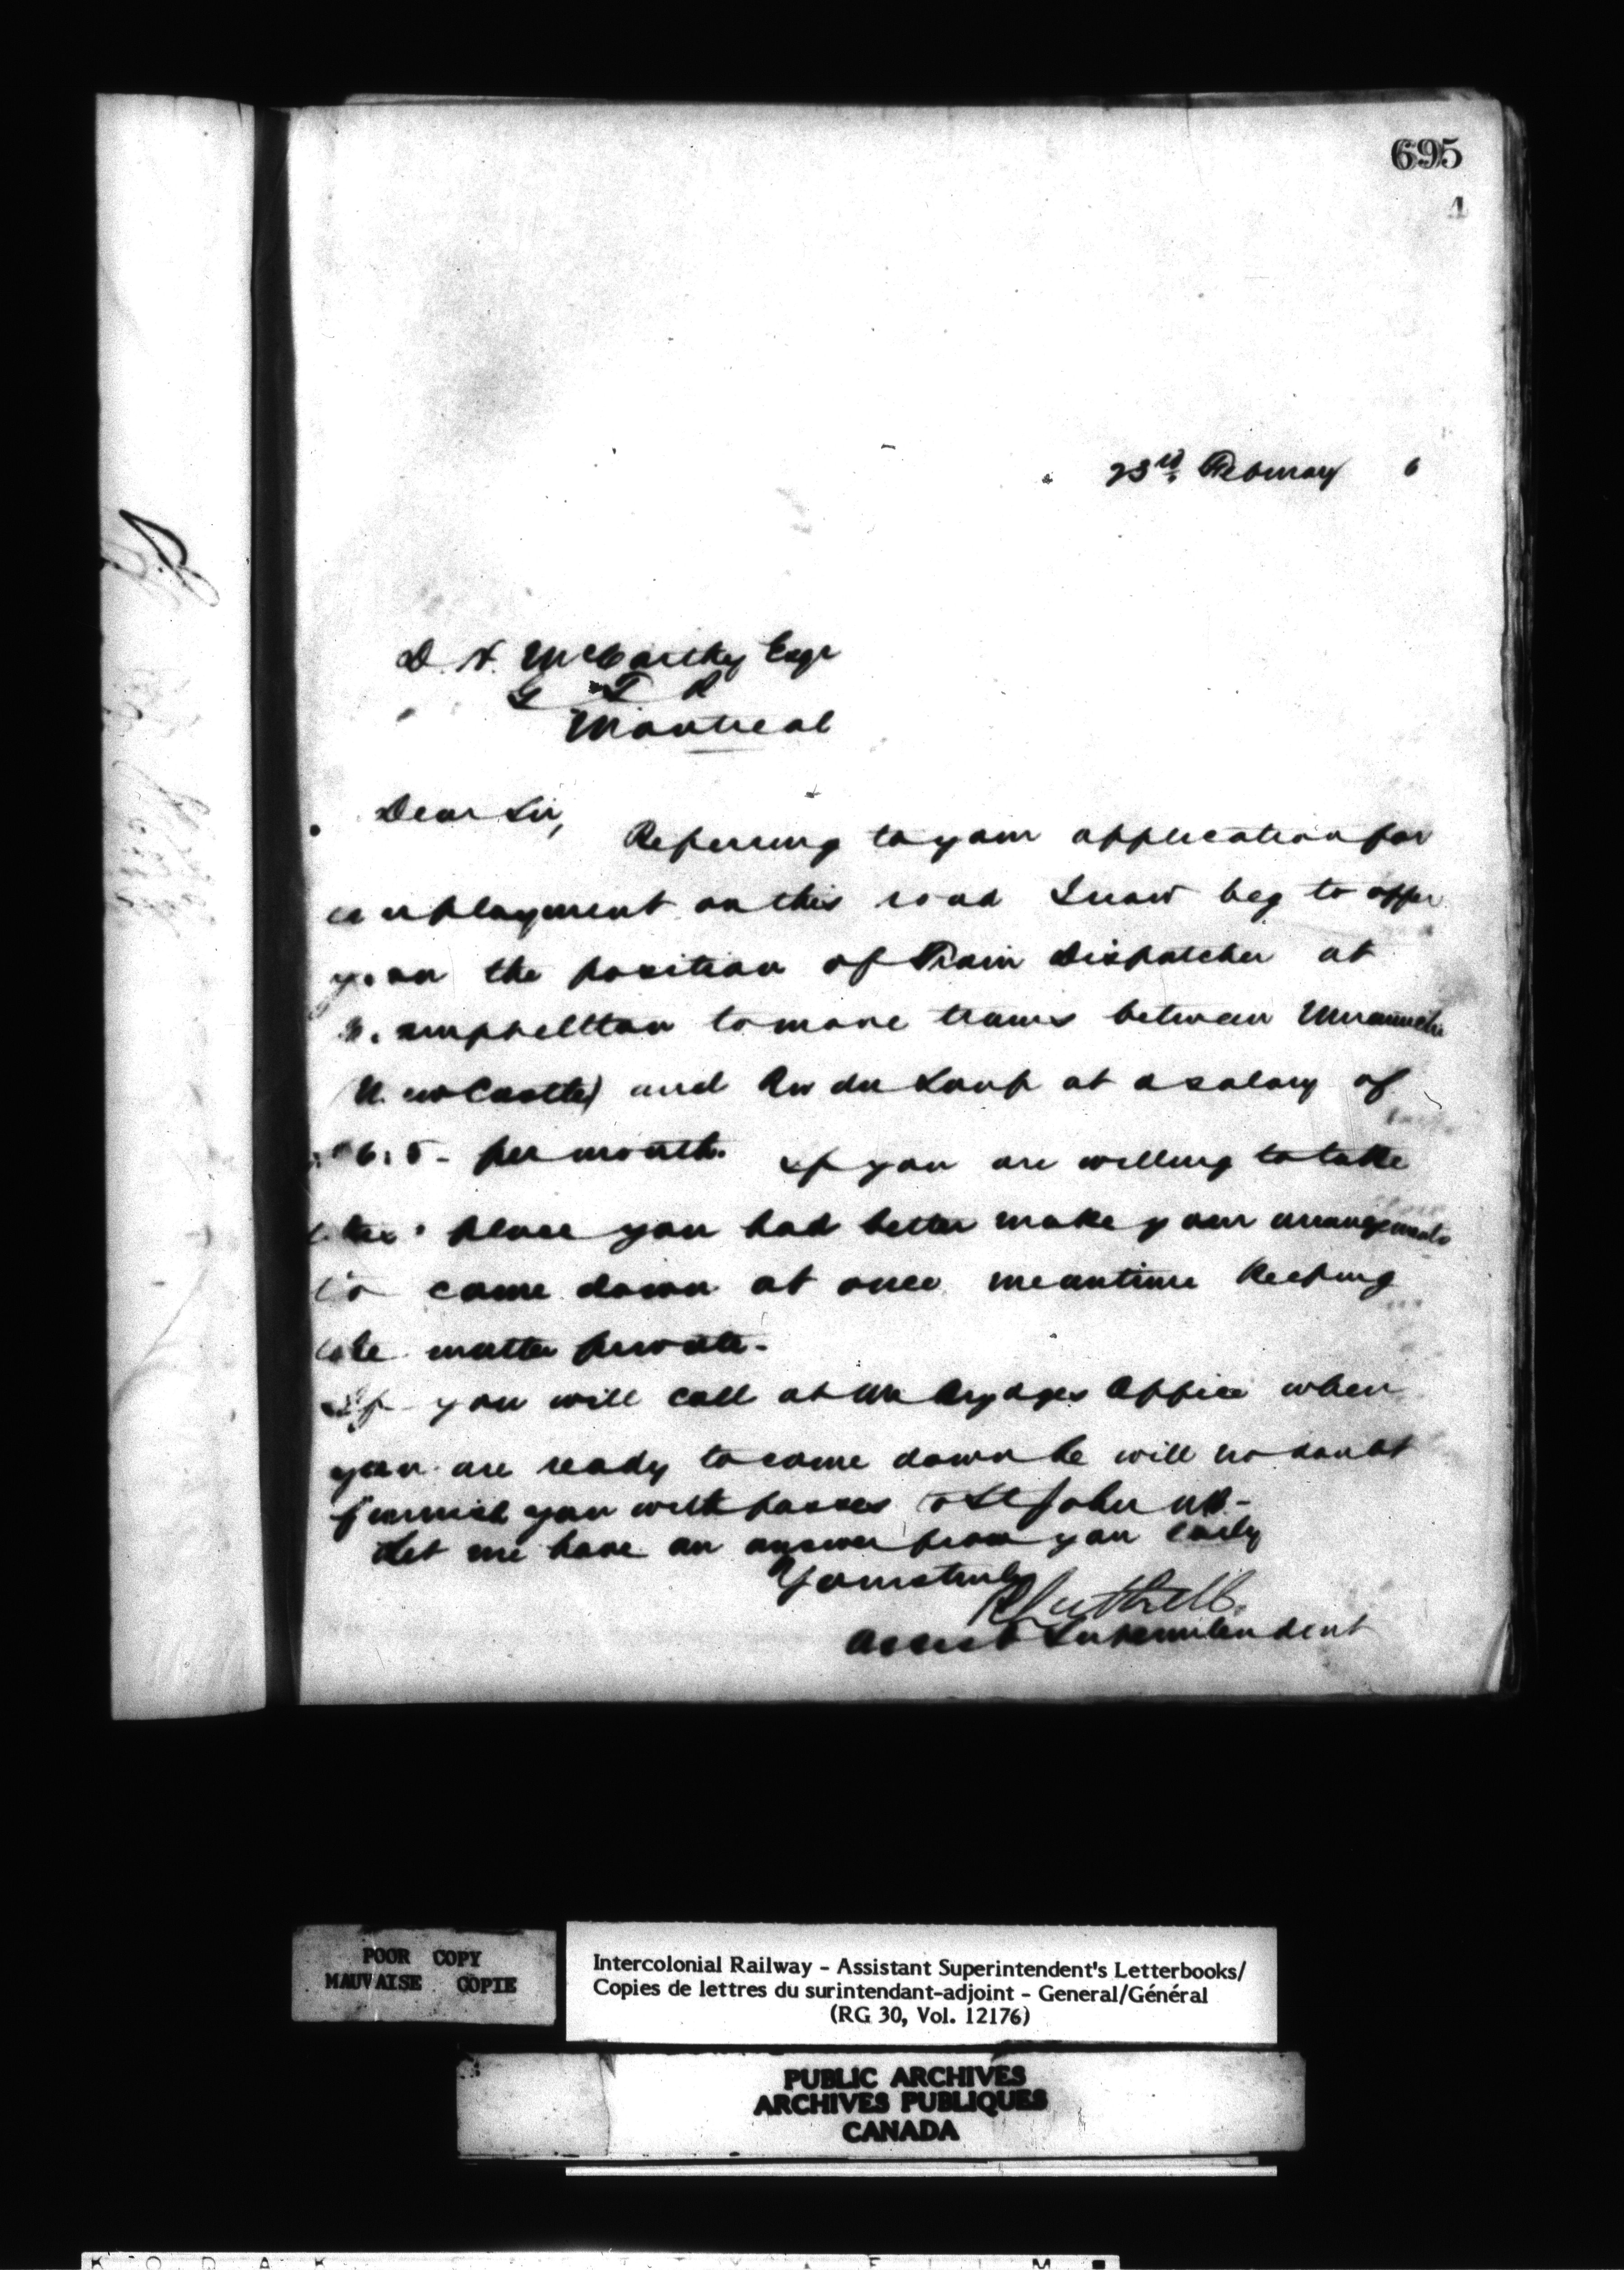 695
23rd February 6
D. N. McCarthy Esqr
G T R
Montreal
Dear Sir,
Referring to your application for
employment on this road I now beg to offer
you the position of Train Dispatcher at
Campbellton to move trains between Miramichi
(NewCastle) and Riv du Loup at a salary of
65- per month. If you are willing to take
this place you had better make your arrangements
to come down at once, meantime keeping
the matter private-
If you will call at Mr Brydges Office when
you are ready to come down he will no doubt
furnish you with passes to St John NB-
Let me have an answer from you early
Yours truly
R Luttrell
Assist Superintendent
POOR COPY
MAUVAISE COPIE
Intercolonial Railway - Assistant Superintendent's Letterbooks/
Copies de lettres du surintendant-adjoint - General/Général
(RG 30, Vol. 12176)
PUBLIC ARCHIVES
ARCHIVES PUBLIQUES
CANADA